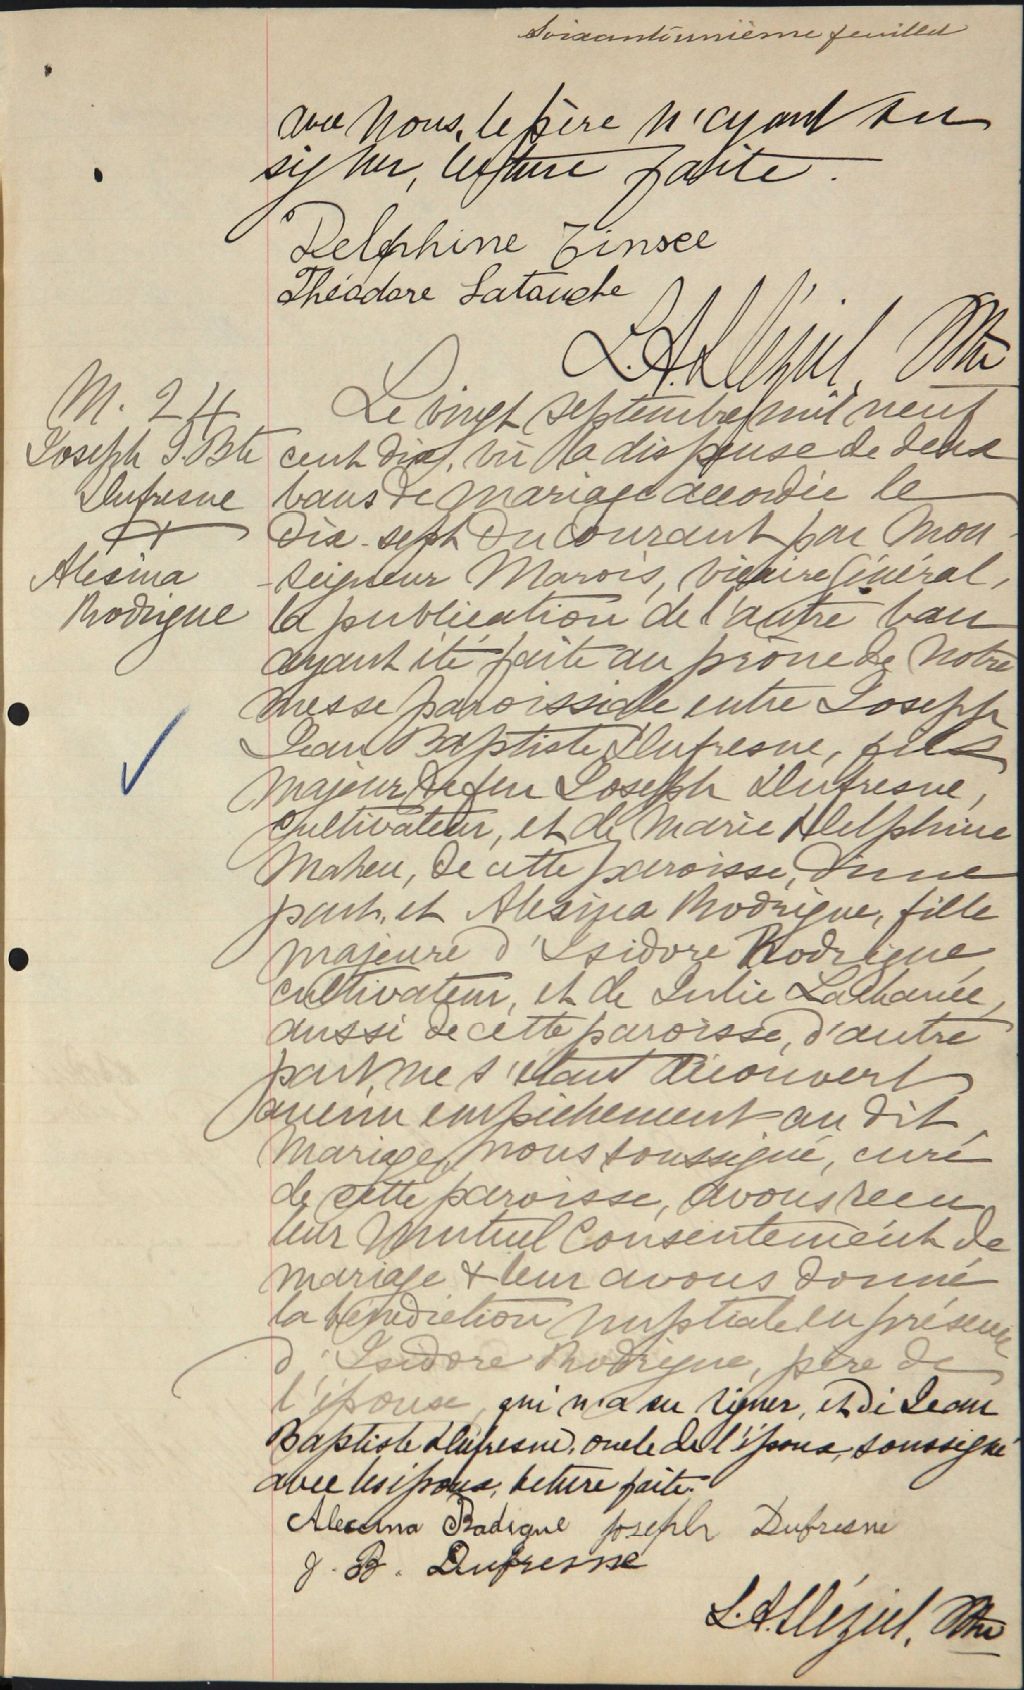 Soixantunième feuillet
avec Nous, le père n'ayant su
signer, lecture faite.
Delphine
Théodore Latouche
Ptre
M. 24
Joseph J. Bte
Dufresne
&
Alesina
Rodrigue
Le vingt septembre mil neuf
cent dix, vu la dispense de deux
bans de mariage accordée le
dix-sept du courant par Mon-
seigneur Marois, vicaire Général,
la publication de l'autre ban
ayant été faite au prône de Notre
messe paroissiale entre Joseph
Jean Baptiste Dufresne, fils
majeur de feu Joseph Dufresne,
cultivateur, et de Marie Delphine
Maheu, de cette paroisse, d'une
part, et Alesina Rodrigue, fille
majeure d'Isidore Rodrigue
cultivateur, et de Julie Lacharité,
aussi de cette paroisse, d'autre
part, ne s'étant découvert
aucun empêchement au dit
mariage, nous soussigné, curé
de cette paroisse, avons reçu
leur mutuel consentement de
mariage & leur avons donné
la bénédiction nuptiale en présence
d'Isidore Rodrigue, père de
l'épouse, qui n'a su signer, et de Jean
Baptiste Dufresne, oncle de l'époux, soussigné
avec les époux, lecture faite.
Alesina Rodigue Joseph Dufresne
J. B. Dufresne
Ptre